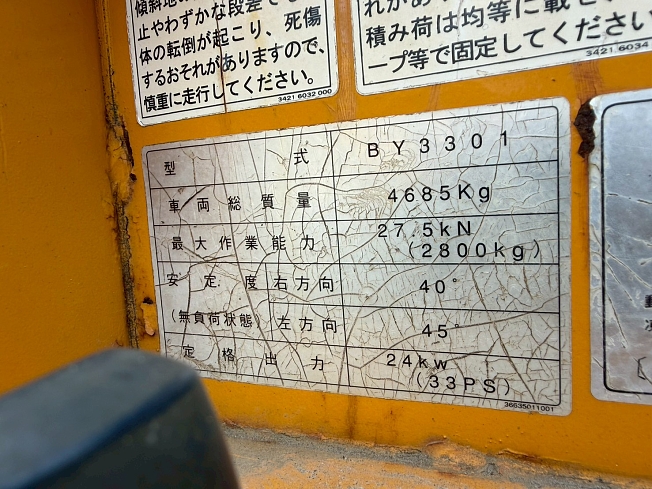 止やわずかな段差でも
体の転倒が起こり、死傷
するおそれがありますので、
慎重に走行してください。
3421 6032 000
積み荷は均等に載せ
ープ等で固定してください
3421 6034
型式 BY3301
車両総質量 4685Kg
最大作業能力 27.5kN
(2800kg)
安定度右方向 40°
(無負荷状態) 左方向 45°
定格出力 24kw
(33PS)
36635011001